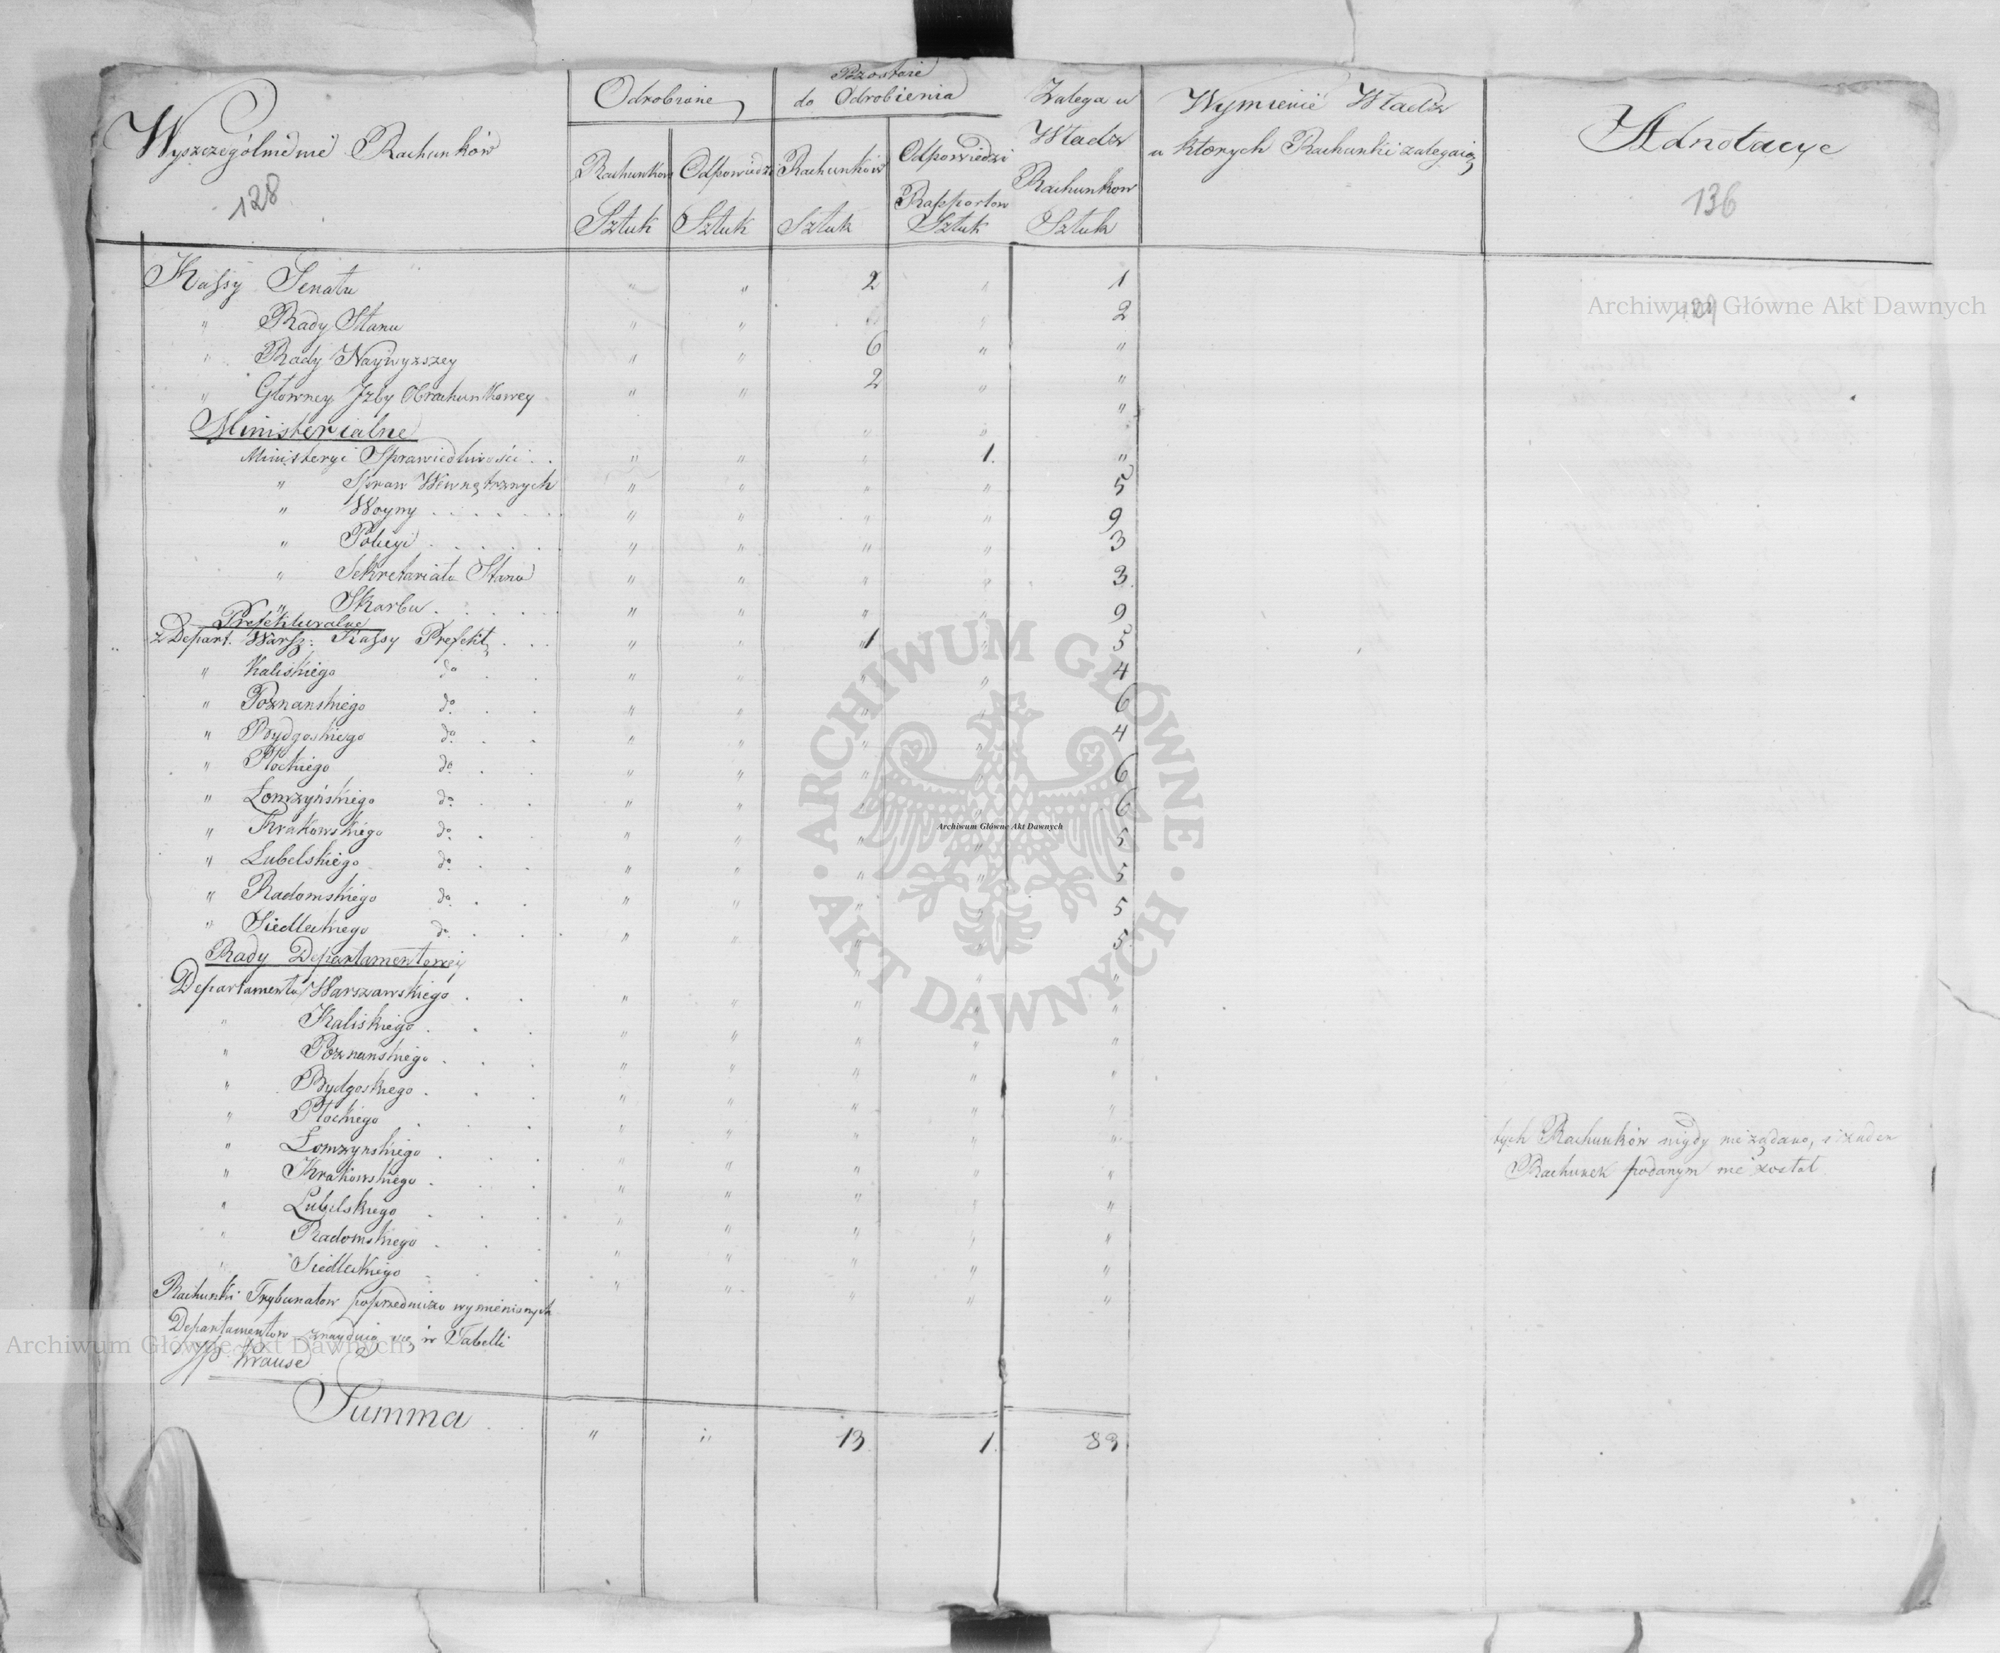 Wyszczególnienie Rachunków
128
Odrobione
Pozostaie
do Odrobienia
Zalega u
Władz
Rachunkow
Sztuk
Wymienić Władze
u ktorych Rachunki zalegaią
Adnotacye
136
Rachunkow
Sztuk
Odpowiedzi
Sztuk
Rachunków
Sztuk
Odpowiedzi
Rapportow
Sztuk
Kassy Senatu " " 2 " 1
" Rady Stanu " " " 2
" Rady Naywyzszey " " 6 " "
" Głowney Jzby Obrachunkowey " " 2 " "
Ministerialne " " "
Ministeryi Sprawiedliwości " " " 1. "
" Spraw Wewnętrznych " " " " 5
" Woyny " " " " 9
" Policyi " " " " 3
" Sekretariatu Stanu " " " " 3.
" Skarbu " " " " 9
Prefekturalne
z Depart. Warsz: Kassy Prefekt " " 1 " 5
" Kaliskiego do " " " " 4
" Poznanskiego do " " " " 6
" Bydgoskiego do " " " " 4
" Płockiego do " " " " 6
" Łomżyńskiego do " " " " 6
" Krakowskiego do " " " " 5
" Lubelskiego do " " " " 5
" Radomskiego do " " " " 5
" Siedleckiego do " " " " 5
Rady Departamentowey
Departamentu Warszawskiego " " " " "
" Kaliskiego " " " " "
" Poznanskiego " " " " "
" Bydgoskiego " " " " "
" Płockiego " " " " "
" Łomzynskiego " " " " "
" Krakowskiego " " " " "
" Lubelskiego " " " " "
" Radomskiego " " " " "
" Siedleckiego " " " " "
tych Rachunków nigdy nie żądano, i żaden
Rachunek podanym nie został
Rachunki Trybunałow poprzedniczo wymienionych
Departamentow znayduią się w Tabelli
JP. Krause
Summa " " 13 1. 83.
129
Archiwum Główne Akt Dawnych
ARCHIWUM GŁÓWNE AKT DAWNYCH
Archiwum Główne Akt Dawnych
Archiwum Główne Akt Dawnych